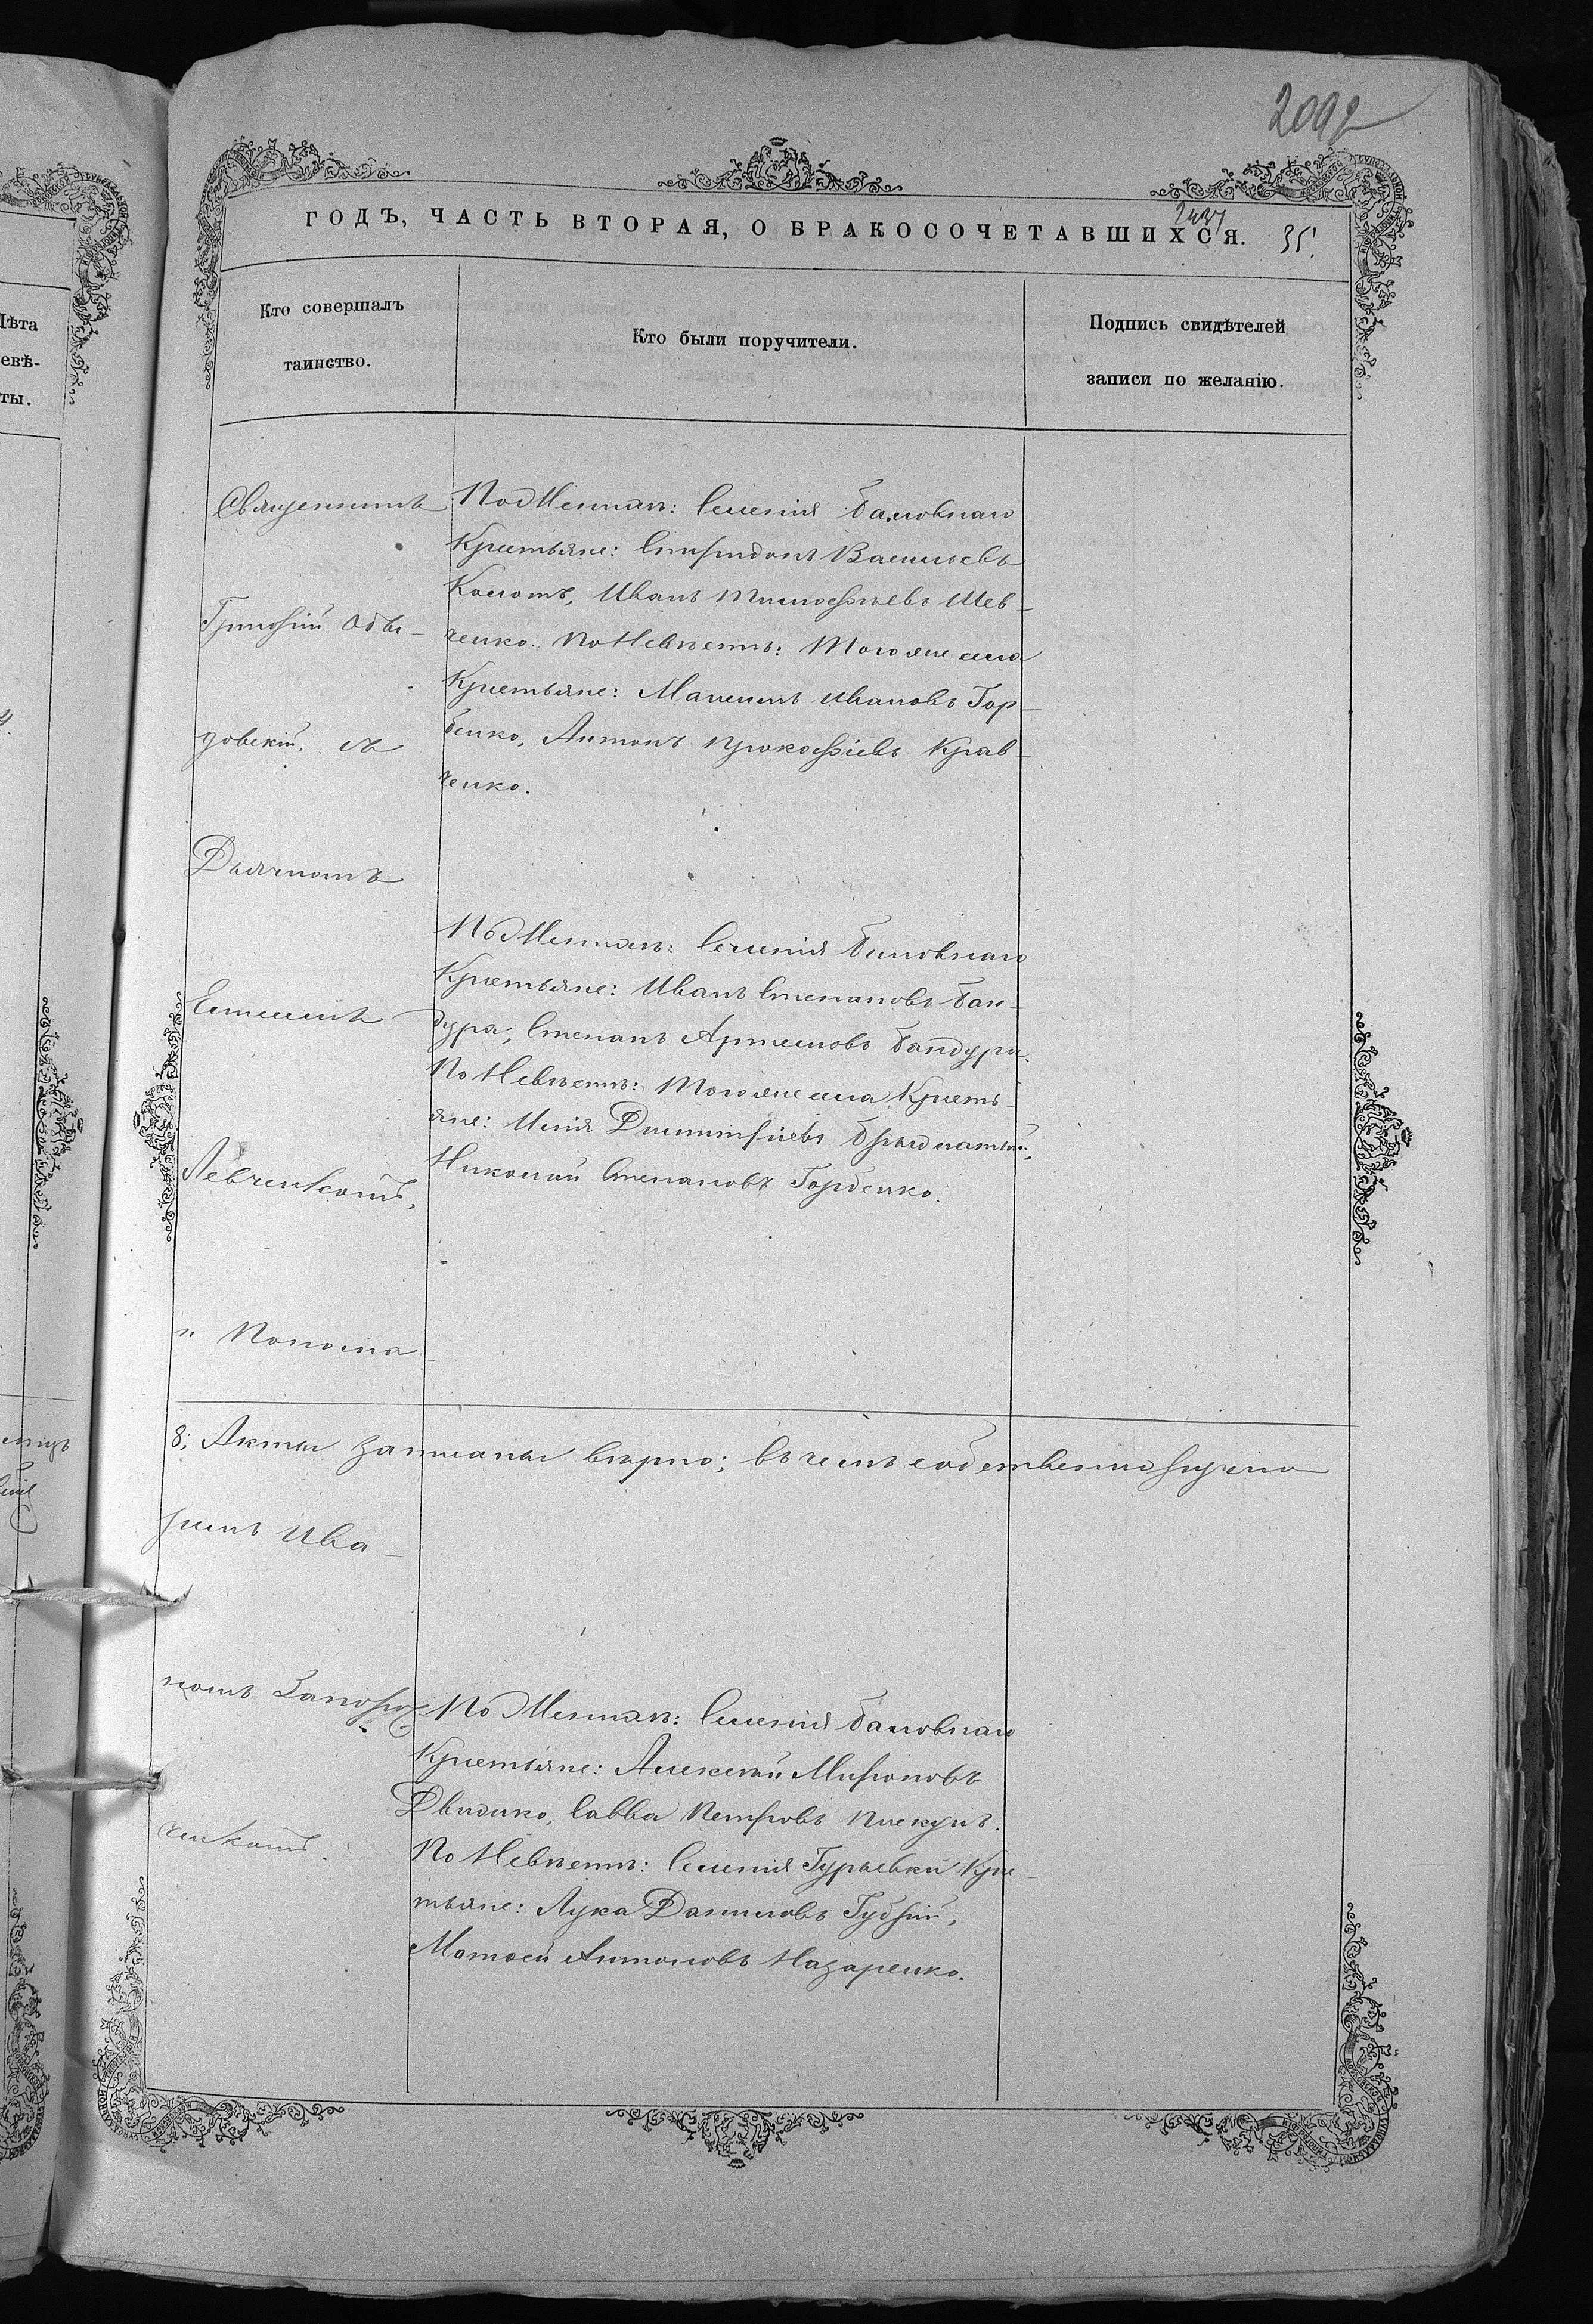 2092
ГОДЪ, ЧАСТЬ ВТОРАЯ, О БРАКОСОЧЕТАВШИХСЯ.
35.
Кто совершалъ
таинство.
Кто были поручители.
Подпись свидѣтелей
записи по желанію.
Лѣта
невѣ-
ты.
Священникъ
Григорій
довскій, съ
Дьячкомъ
Евгеніемъ
Левченкомъ,
и Понома
ремъ Ива-
номъ Запорож
ченкомъ.
По Женихѣ: Селенія Баловнаго
Крестьяне: Спиридонъ Васильевъ
Коломъ, Иванъ Тимоѳѣевъ Шев-
ченко. По Невѣстѣ: Того же села
Крестьяне: Максимъ Ивановъ Гор-
бенко, Антонъ Прокофіевъ Крав-
ченко.
По Женихѣ: Селенія Баловнаго
Крестьяне: Иванъ Степановъ Бан-
дура, Степанъ Артемовъ Бандура.
По Невѣстѣ: Того же села Кресть-
яне: Илія Димитріевъ
Николай Степановъ Горбенко.
8; Акты записаны вѣрно; въ чемъ собственноручно
По Женихѣ: Селенія Баловнаго
Крестьяне: Алексѣй Мироновъ
Савва Петровъ Пискунъ.
По Невѣстѣ: Селенія Гурьевки Кре-
стьяне: Лука Даниловъ Губрій,
Матѳей Антоновъ Назаренко.